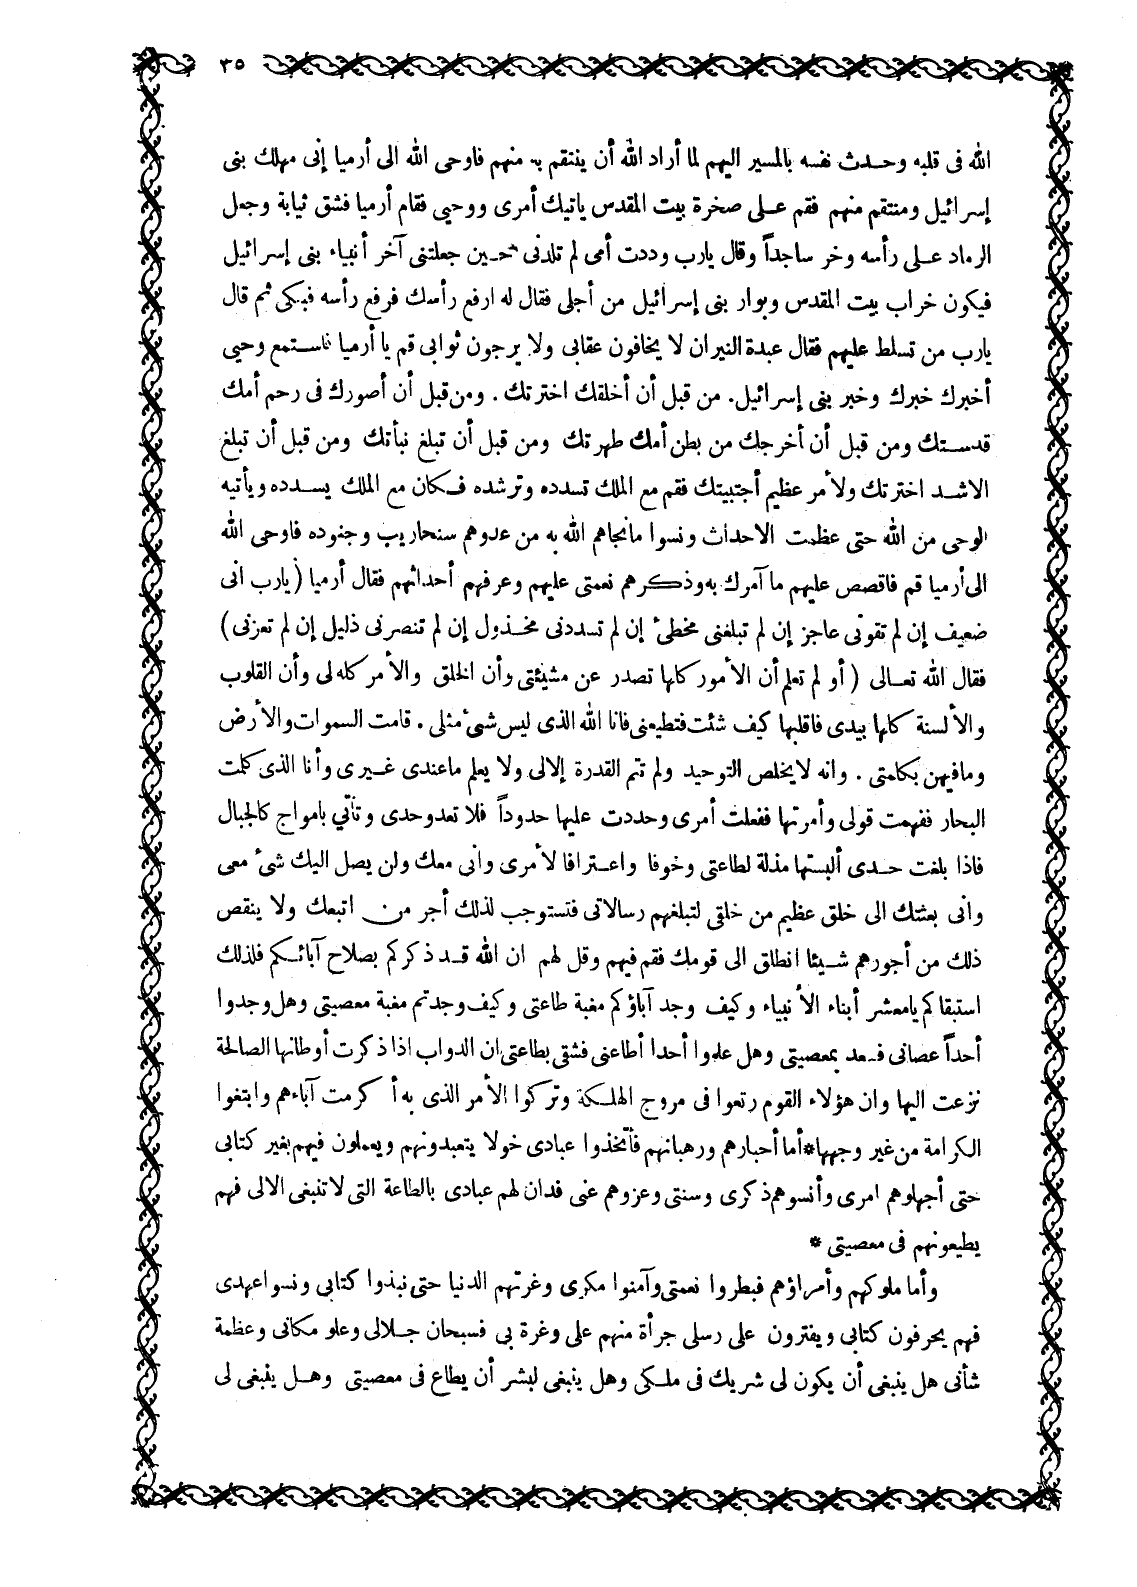 ٣٥
الله فى قلبه وحدث نفسه بالمسير اليهم لما أراد الله أن ينتقم به منهم فاوحى الله الى أرميا إنى مهلك بنى
إسرائيل ومنتقم منهم فقم على صخرة بيت المقدس ياتيك أمرى ووحيى فقام أرميا فشق ثيابة وجعل
الرماد على رأسه وخر ساجداً وقال يارب وددت أمى لم تلدنى حين جعلتنى آخر أنبياء بنى إسرائيل
فيكون خراب بيت المقدس وبوار بنى إسرائيل من أجلى فقال له ارفع رأسك فرفع رأسه فبكى ثم قال
يارب من تسلط عليهم فقال عبدة النيران لا يخافون عقابى ولا يرجون ثوابى قم يا أرميا فاستمع وحيى
أخبرك خبرك وخبر بنى إسرائيل. من قبل أن أخلقك اخترتك . ومن قبل أن أصورك فى رحم أمك
قدستك ومن قبل أن أخرجك من بطن أمك طهرتك ومن قبل أن تبلغ نبأتك ومن قبل أن تبلغ
الاشد اخترتك ولأمر عظيم أجتبيتك فقم مع الملك تسدده وترشده فكان مع الملك يسدده ويأتيه
الوحى من الله حتى عظمت الاحداث ونسوا مانجاهم الله به من عدوهم سنحاريب وجنوده فاوحى الله
الى أرميا قم فاقصص عليهم ما آمرك به وذكرهم نعمتى عليهم وعرفهم أحداثهم فقال أرميا (يارب انى
ضعيف إن لم تقونى عاجز إن لم تبلغنى مخطئ إن لم تسددنى مخذول إن لم تنصرنى ذليل إن لم تعزنى)
فقال الله تعالى ( أو لم تعلم أن الأمور كلها تصدر عن مشيئتى وأن الخلق والأمر كله لى وأن القلوب
والألسنة كلها بيدى فاقلبها كيف شئت فتطيعنى فانا الله الذى ليس شئ مثلى . قامت السموات والأرض
ومافيهن بكلمتى . وانه لايخلص التوحيد ولم تتم القدرة إلالى ولا يعلم ماعندى غيرى وأنا الذى كلمت
البحار ففهمت قولى وأمرتها ففعلت أمرى وحددت عليها حدوداً فلا تعدوحدى وتأتي بامواج كالجبال
فاذا بلغت حدى ألبستها مذلة لطاعتى وخوفا واعترافا لأمرى وانى معك ولن يصل اليك شئ معى
وانى بعثتك الى خلق عظيم من خلقى لتبلغهم رسالاتى فتستوجب لذلك أجر من اتبعك ولا ينقص
ذلك من أجورهم شيئا انطلق الى قومك فقم فيهم وقل لهم ان الله قد ذكركم بصلاح آبائكم فلذلك
استبقاكم يامعشر أبناء الأنبياء وكيف وجد آباؤكم مغبة طاعتى وكيف وجدتم مغبة معصيتى وهل وجدوا
أحداً عصانى فسعد بمعصيتى وهل علموا أحدا أطاعنى فشقى بطاعتى ان الدواب اذا ذكرت أوطانها الصالحة
نزعت اليها وان هؤلاء القوم رتعوا فى مروج الهلكة وتركوا الأمر الذى به أكرمت آباءهم وابتغوا
الكرامة من غير وجهها*أما أحبارهم ورهبانهم فأتخذوا عبادى خولا يتعبدونهم ويعملون فيهم بغير كتابى
حتى أجهلوهم امرى وأنسوهم ذكرى وسنتى وعزوهم عنى فدان لهم عبادى بالطاعة التى لاتنبغى الالى فهم
يطيعونهم فى معصيتى *
وأما ملوكهم وأمراؤهم فبطروا نعمتى وآمنوا مكرى وغرتهم الدنيا حتى نبذوا كتابى ونسوا عهدى
فهم يحرفون كتابى ويفترون على رسلى جرأة منهم على وغرة بى فسبحان جلالى وعلو مكانى وعظمة
شأنى هل ينبغى أن يكون لى شريك فى ملكى وهل ينبغى لبشر أن يطاع فى معصيتى وهل ينبغى لى